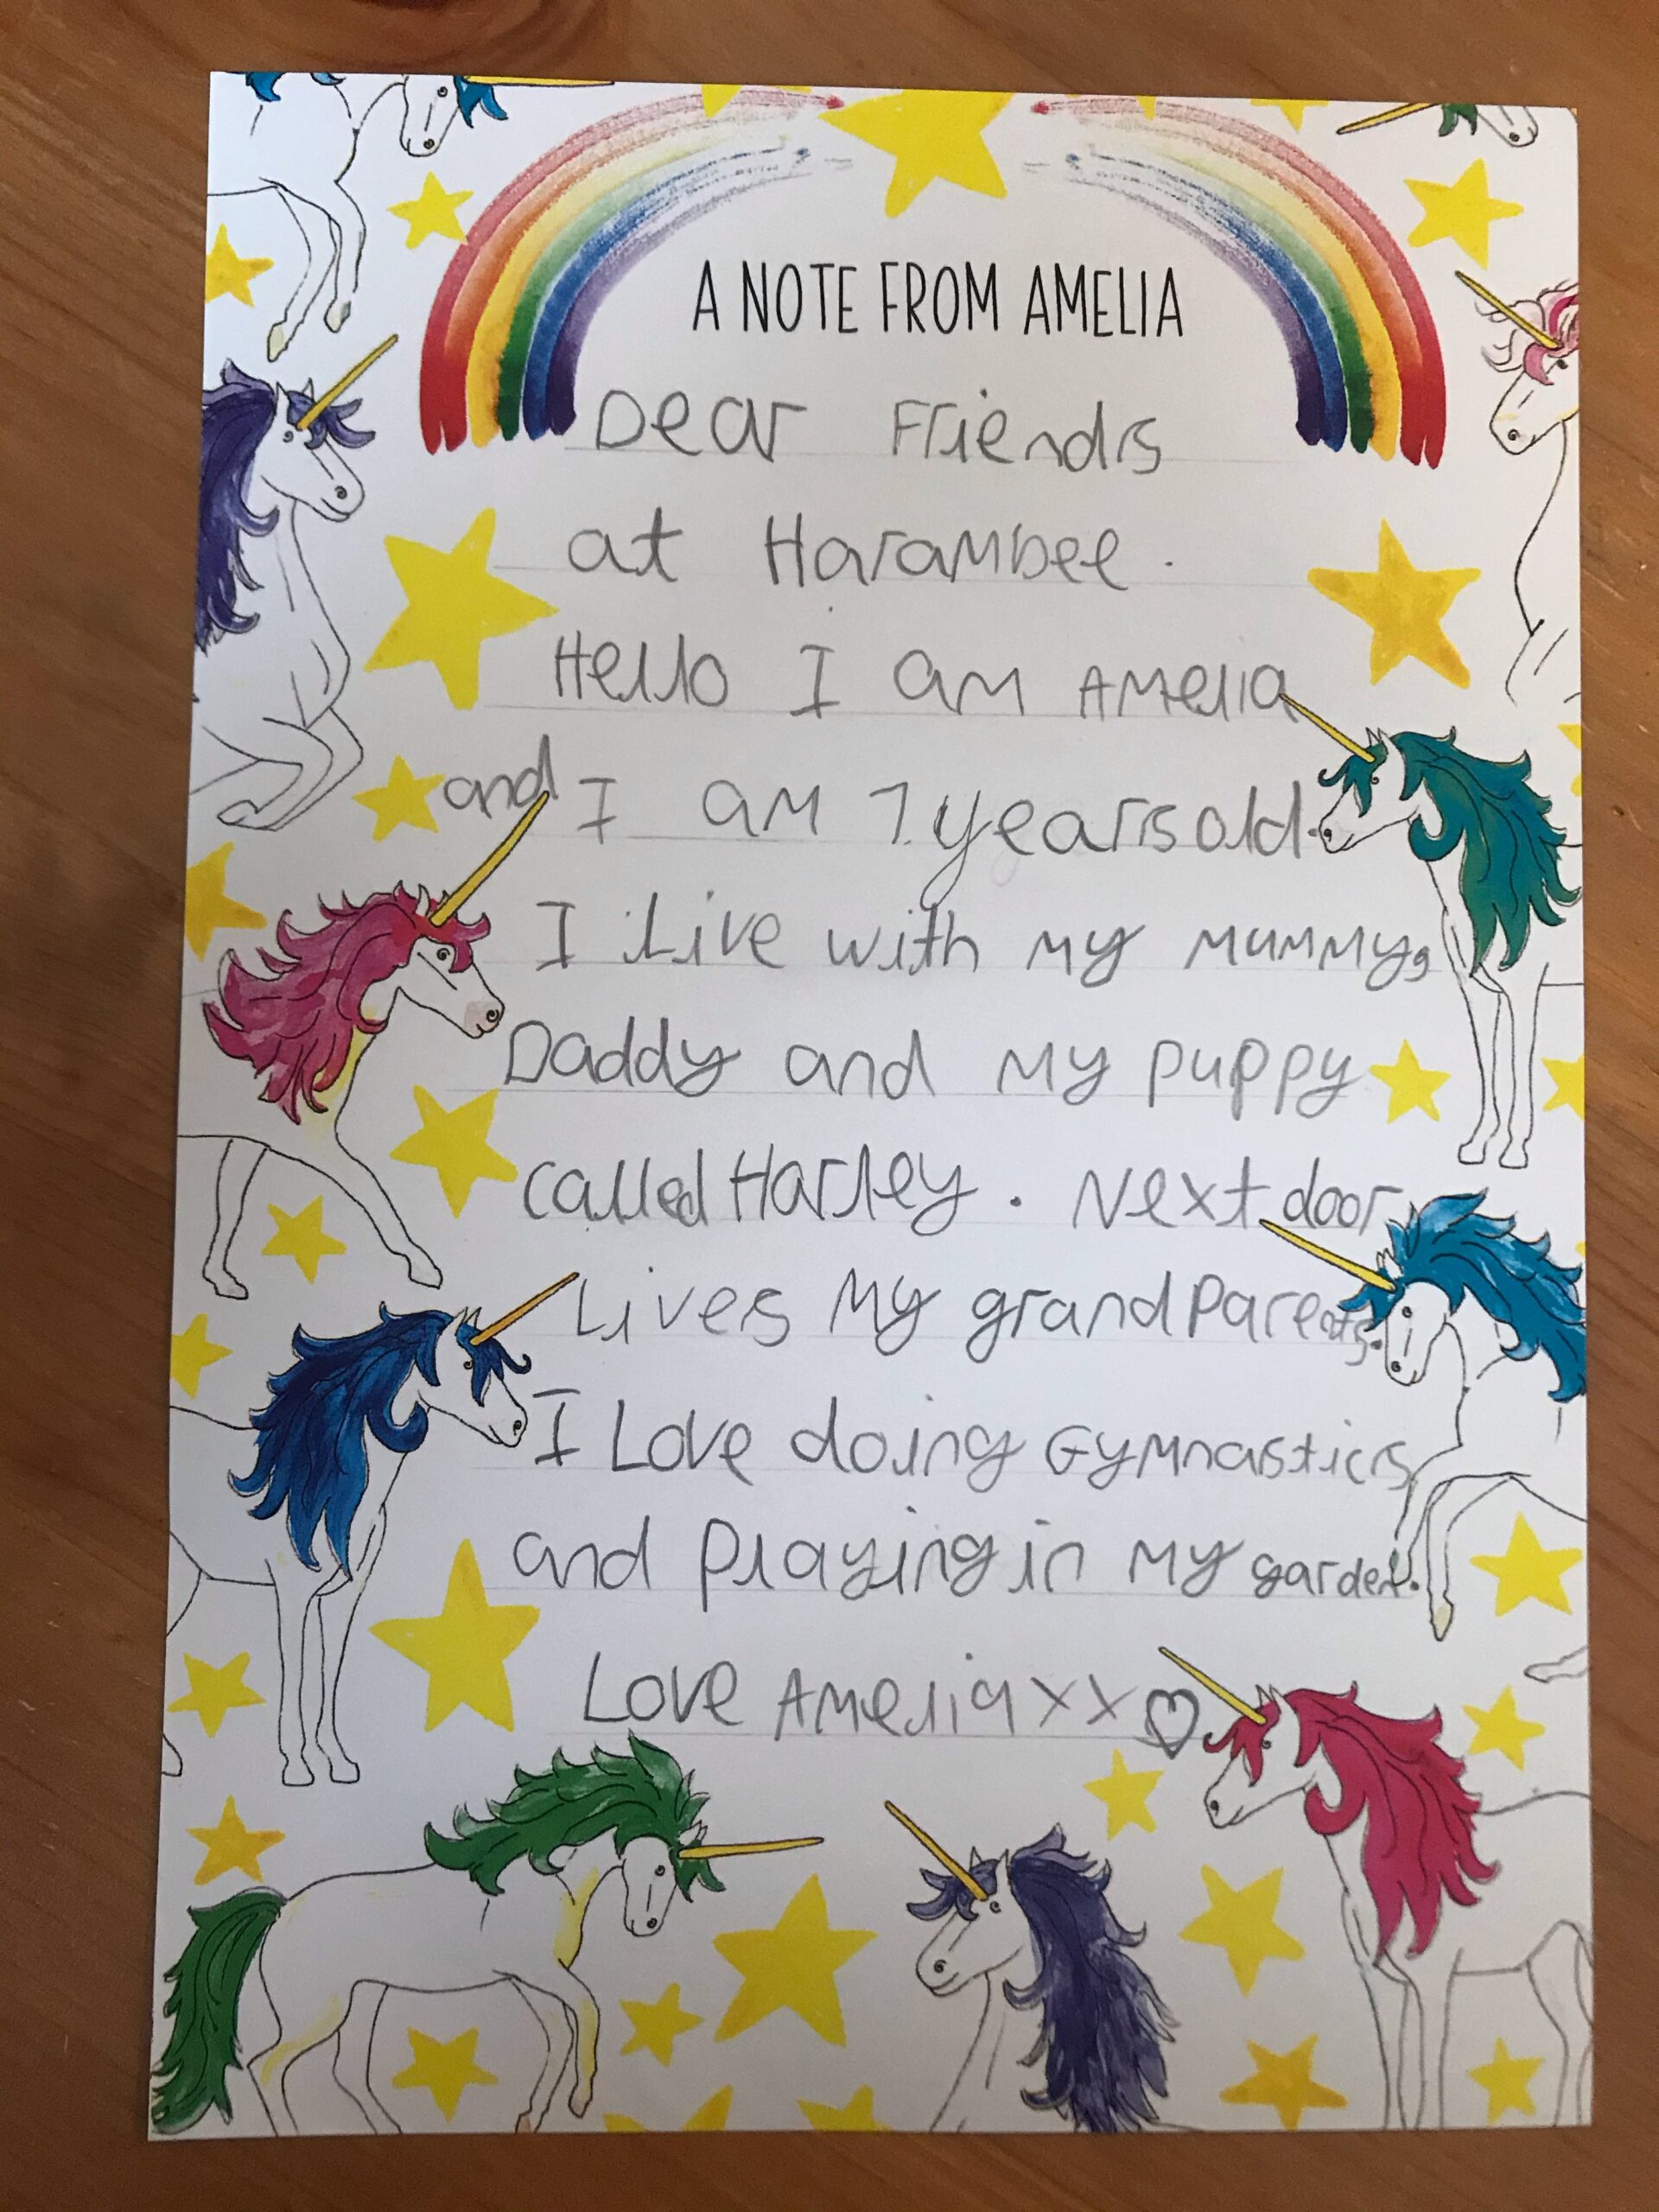 A NOTE FROM AMELIA
Dear Friends
at Harambee.
Hello I am Amelia
and I am 7 years old.
I Live with my mummy,
Daddy and my puppy
called Harley. Next door
Lives my grandparents.
I Love doing Gymnastics
and playing in my garden.
Love Amelia xx ♡